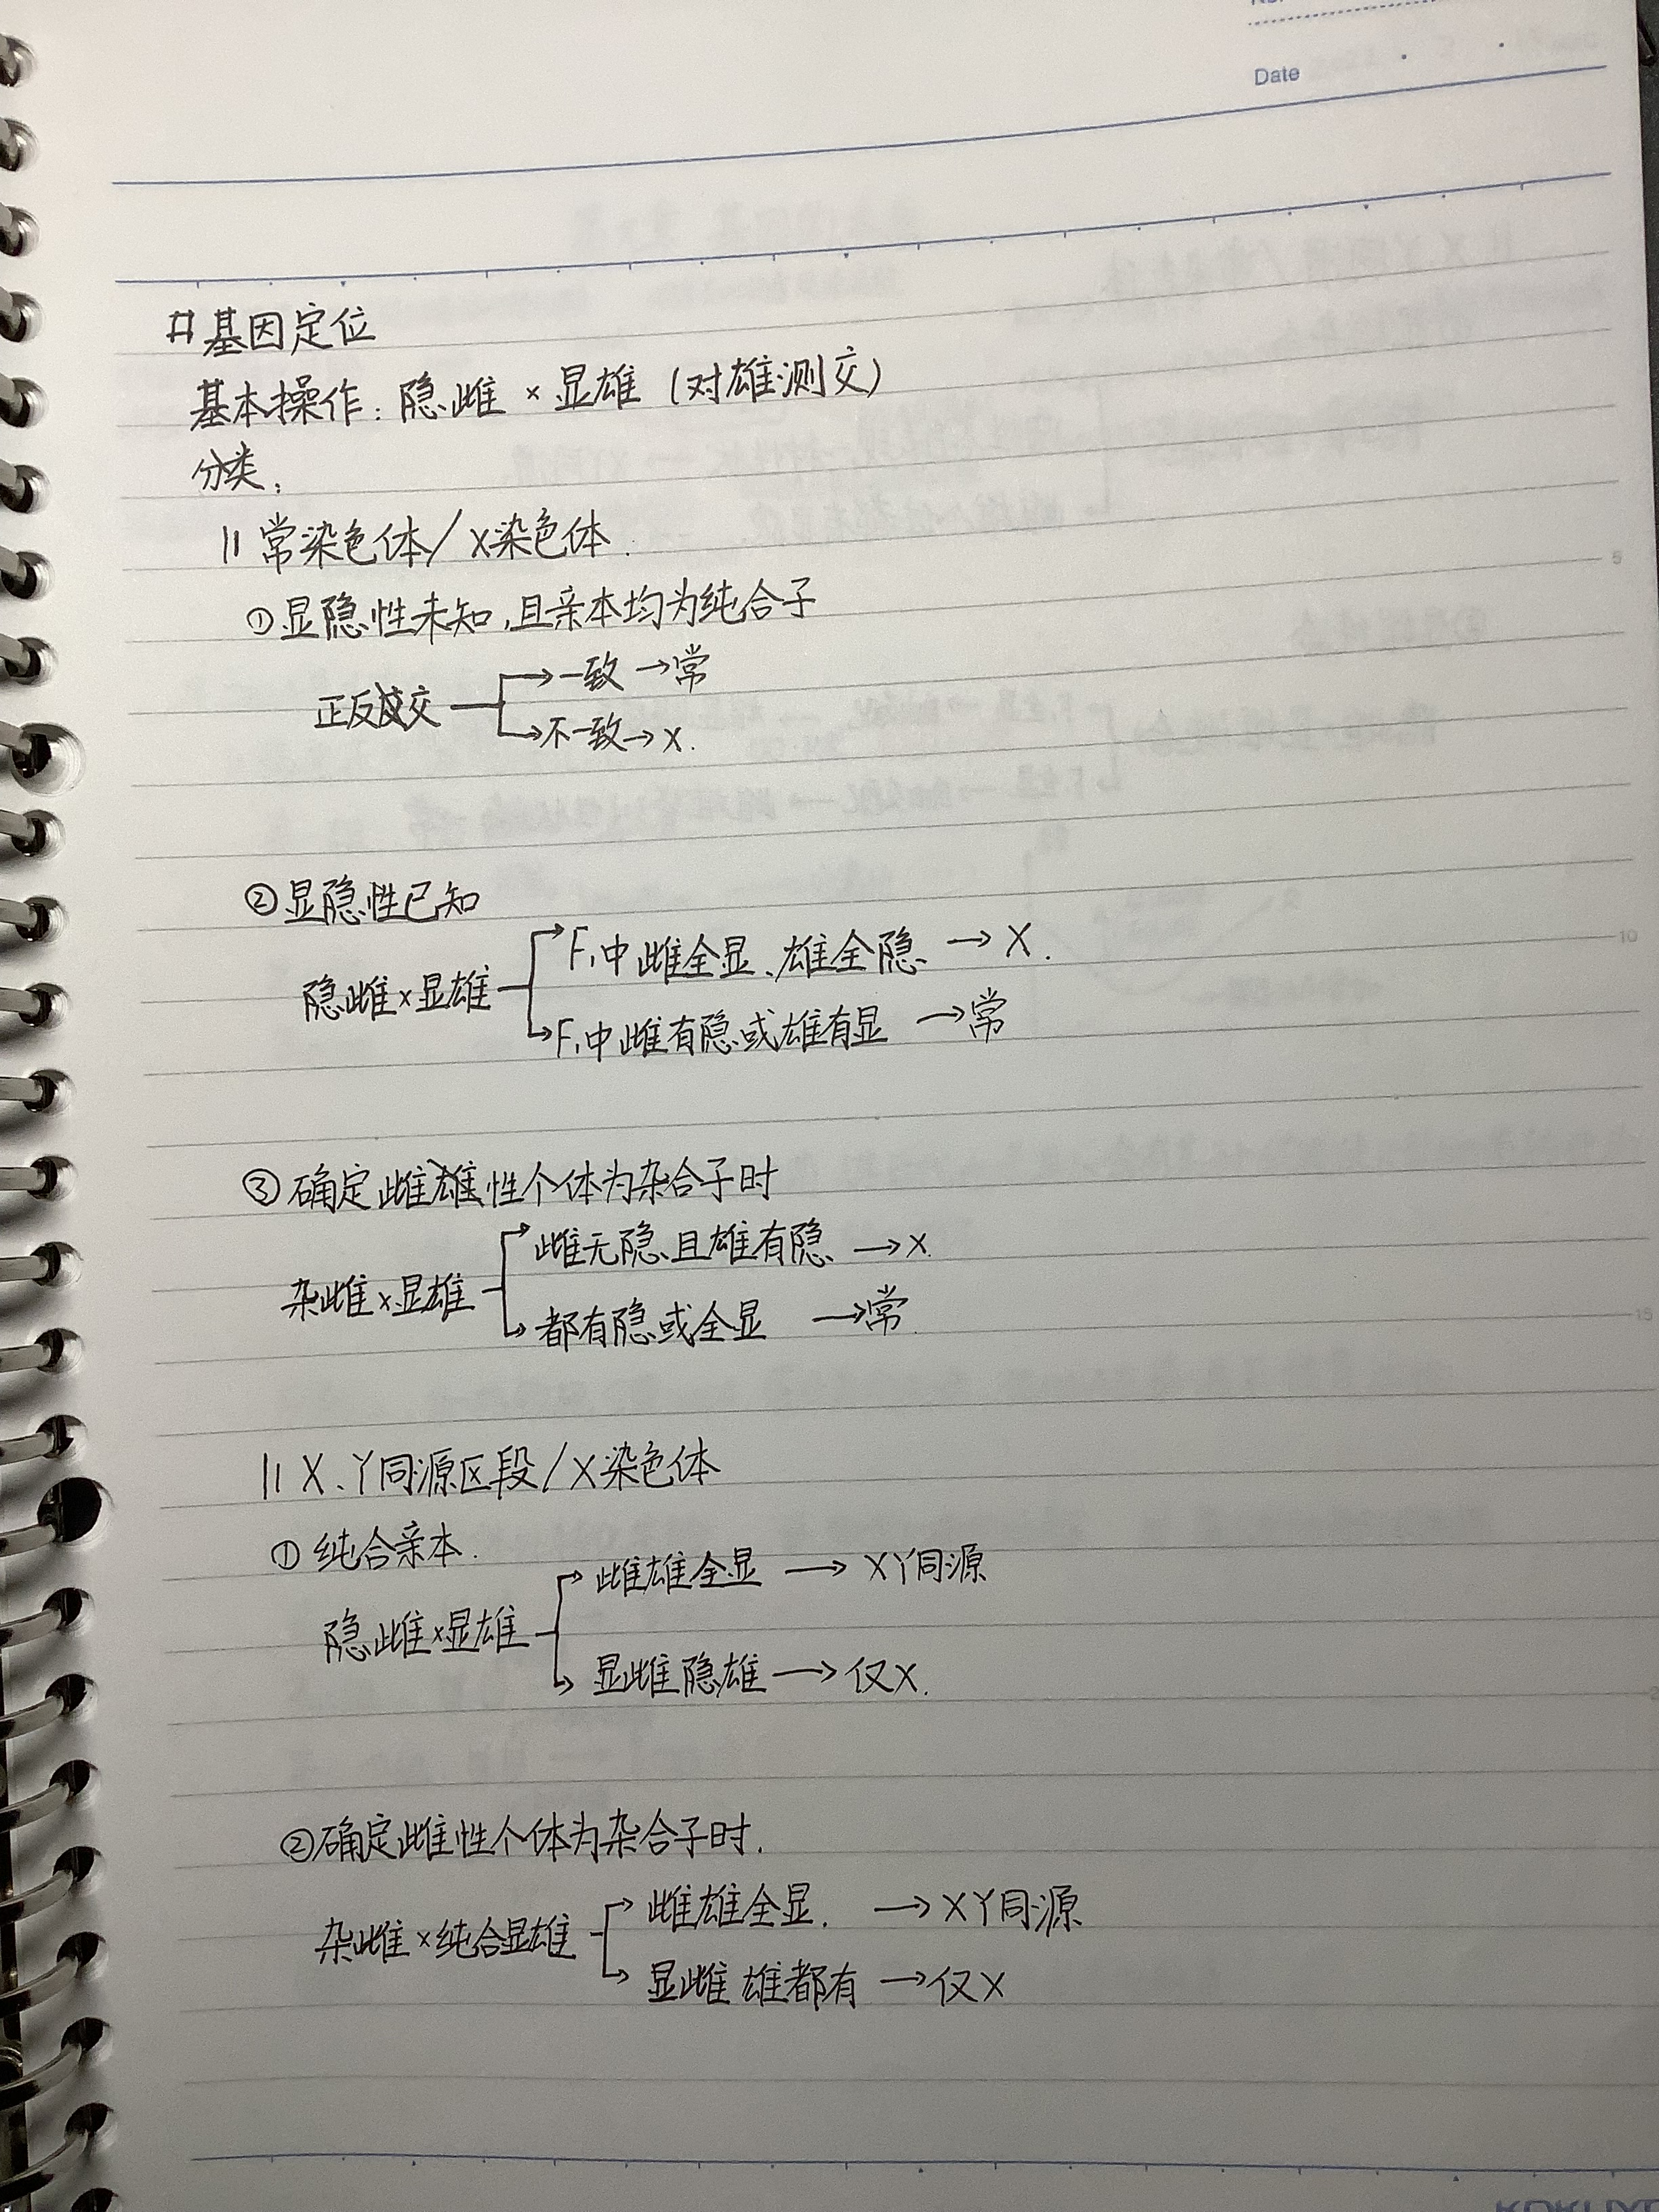 Date
# 基因定位
基本操作: 隐雌 × 显雄 (对雄测交)
分类:
|| 常染色体/X染色体.
① 显隐性未知,且亲本均为纯合子
→一致→常
正反交
→不一致→X.
②显隐性已知
F₁中雌全显、雄全隐 → X.
隐雌×显雄
F₁中雌有隐或雄有显 →常
③ 确定雌性个体为杂合子时
雌无隐、且雄有隐 →X.
杂雌×显雄
都有隐或全显 →常
|| X、Y同源区段/X染色体
① 纯合亲本.
雌雄全显 → XY同源
隐雌×显雄
显雌隐雄 → 仅X.
②确定雌性个体为杂合子时.
雌雄全显. → XY同源
杂雌×纯合显雄
显雌 雄都有 →仅X
5
10
15